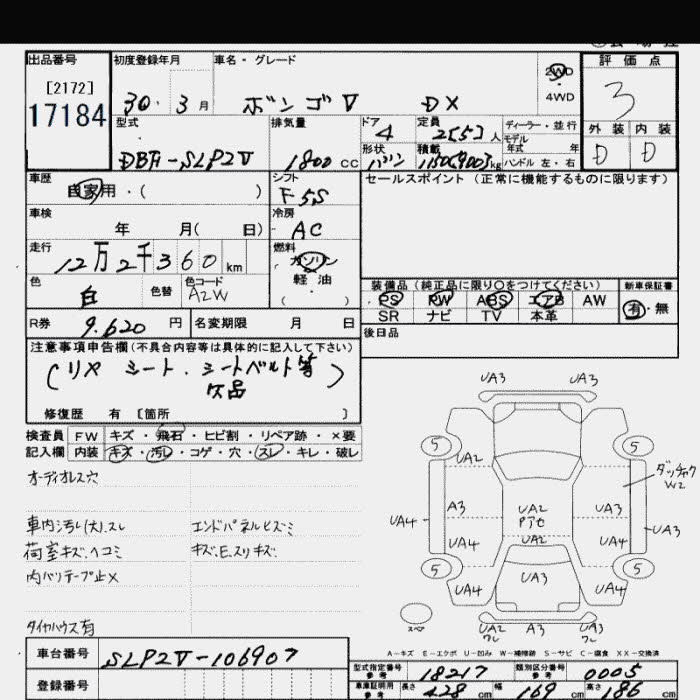 出品番号
[2172]
17184
初度登録年月
30・3月
車名・グレード
ボンゴV DX
2WD
4WD
評価点
3
外装 内装
D D
型式
DBF-SLP2V
排気量
1800cc
ドア
4
定員
2[5]人
形状
バン
積載
1150(900)kg
ディーラー・並行
モデル
年式 年
ハンドル 左・右
車歴
自家用・( )
シフト
F5S
車検
年 月( 日)
冷房
AC
走行
12万2千360km
燃料
ガソリン
軽油
( )
色
白
色替
色コード
A2W
R券
9.620円
名変期限 月 日
セールスポイント(正常に機能するものに限ります)
装備品(純正品に限り○をつけてください)
PS PW ABS エアB AW
SR ナビ TV 本革
新車保証書
有・無
後日品
注意事項申告欄(不具合内容等は具体的に記入して下さい)
(リヤ シート、シートベルト等
欠品)
修復歴 有 〔箇所 〕
検査員 FW キズ・飛石・ヒビ割・リペア跡・×要
記入欄 内装 キズ・汚レ・コゲ・穴・スレ・キレ・破レ
オーディオレス穴
車内汚レ(大)、スレ
荷室キズ、ヘコミ
内バリテープ止×
タイヤハウス有
エンドパネルヒズミ
キズ、E、スリキズ
UA3 UA3
5 5
UA2
ダッチャク
W2
A3 UA2 UA3
UA4 UA3
UA4 UA2 UA4
5 5
UA4 UA3 UA4
スペア
UA2 A3 UA3
A-キズ E-エクボ U-凹み W-補修跡 S-サビ C-腐食 XX-交換済
車台番号
SLP2V-106907
登録番号
型式指定番号
参考
18217
類別区分番号
参考
0005
車庫証明用
参考
長さ 428cm 幅 169cm 高さ 186cm